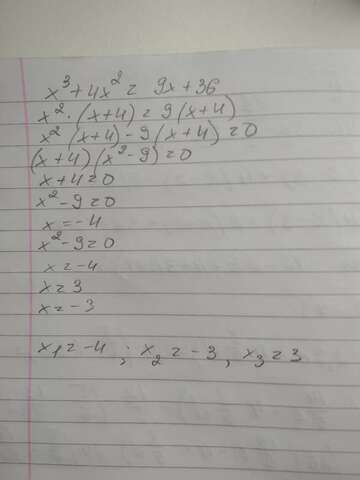 x³+4x²= 9x+36
x²·(x+4)=9(x+4)
x²(x+4)-9(x+4)=0
(x+4)(x²-9)=0
x+4=0
x²-9=0
x=-4
x²-9=0
x=-4
x=3
x=-3
x₁=-4; x₂=-3, x₃=3